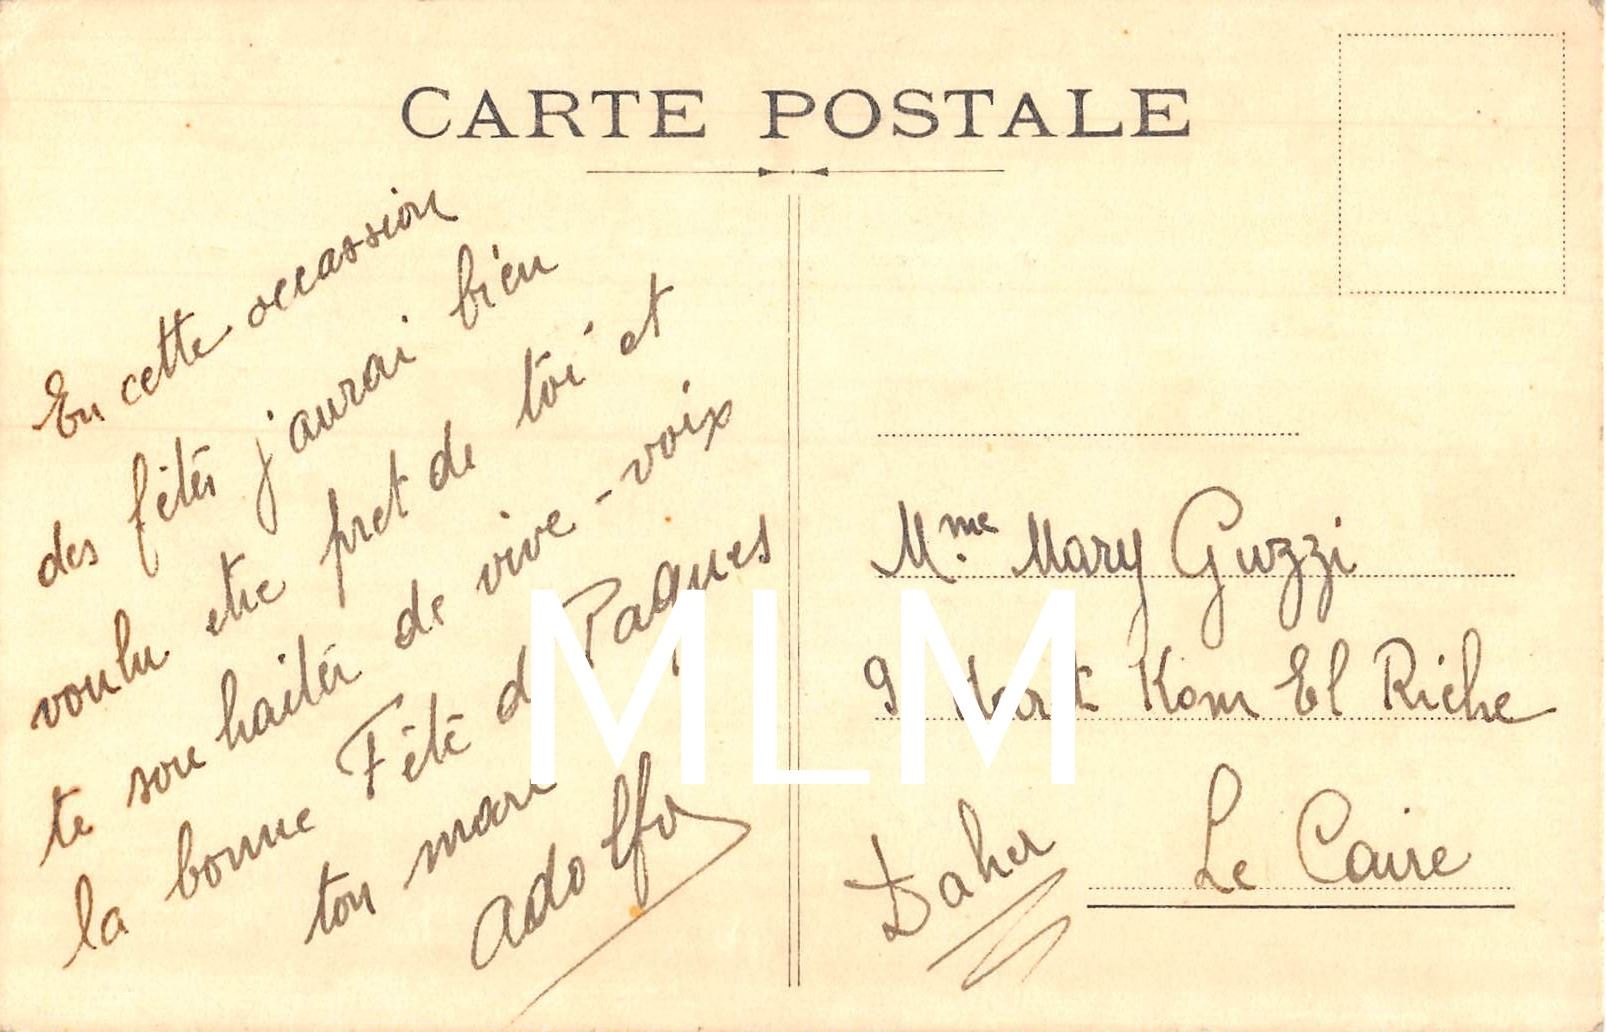 CARTE POSTALE
En cette occassion
des fêtes j'aurai bien
voulu etre pret de toi et
te souhaiter de vive-voix
la bonne Fête d Paques
ton mari
Adolfo
Mme Mary Guzzi
9 Kom El Riche
Le Caire
Daher
MLM